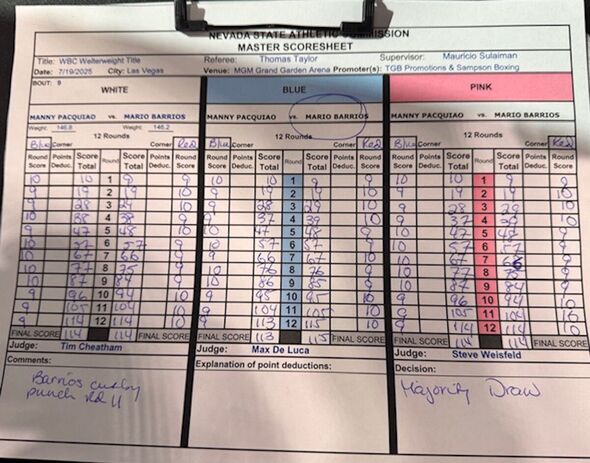 NEVADA STATE ATHLETIC COMMISSION
MASTER SCORESHEET
Title: WBC Welterweight Title Referee: Thomas Taylor Supervisor: Mauricio Sulaiman
Date: 7/19/2025 City: Las Vegas Venue: MGM Grand Garden Arena Promoter(s): TGB Promotions & Sampson Boxing
BOUT: 9
WHITE BLUE PINK
MANNY PACQUIAO vs. MARIO BARRIOS MANNY PACQUIAO vs. MARIO BARRIOS MANNY PACQUIAO vs. MARIO BARRIOS
Weight: 146.8 Weight: 146.2
12 Rounds 12 Rounds 12 Rounds
Blue Corner Corner Red Blue Corner Corner Red Blue Corner Corner Red
Round Score Points Deduc. Score Total Round Score Total Points Deduc. Round Score Round Score Points Deduc. Score Total Round Score Total Points Deduc. Round Score Round Score Points Deduc. Score Total Round Score Total Points Deduc. Round Score
10 10 1 9 9 10 10 1 9 9 10 10 1 9 9
9 19 2 19 10 9 19 2 19 10 9 19 2 19 10
9 28 3 29 10 9 28 3 29 10 9 28 3 29 10
10 38 4 38 9 9 37 4 39 10 9 37 4 39 10
9 47 5 48 10 47 5 48 9 10 47 5 48 9
10 57 6 57 9 10 57 6 57 9 10 57 6 57 9
10 67 7 9 9 66 7 67 10 10 67 7 9
10 77 8 75 9 10 76 8 76 9 10 77 8 75 9
10 87 9 84 9 10 86 9 85 9 10 87 9 84 9
9 96 10 94 10 9 95 10 95 10 9 96 10 94 10
9 105 11 104 10 9 104 11 105 10 9 105 11 104 10
9 114 12 114 10 9 113 12 115 10 9 114 12 114 10
FINAL SCORE 114 114 FINAL SCORE FINAL SCORE 113 115 FINAL SCORE FINAL SCORE 114 114 FINAL SCORE
Judge: Tim Cheatham Judge: Max De Luca Judge: Steve Weisfeld
Comments: Explanation of point deductions: Decision:
Barrios
punch Rd 11
Majority Draw